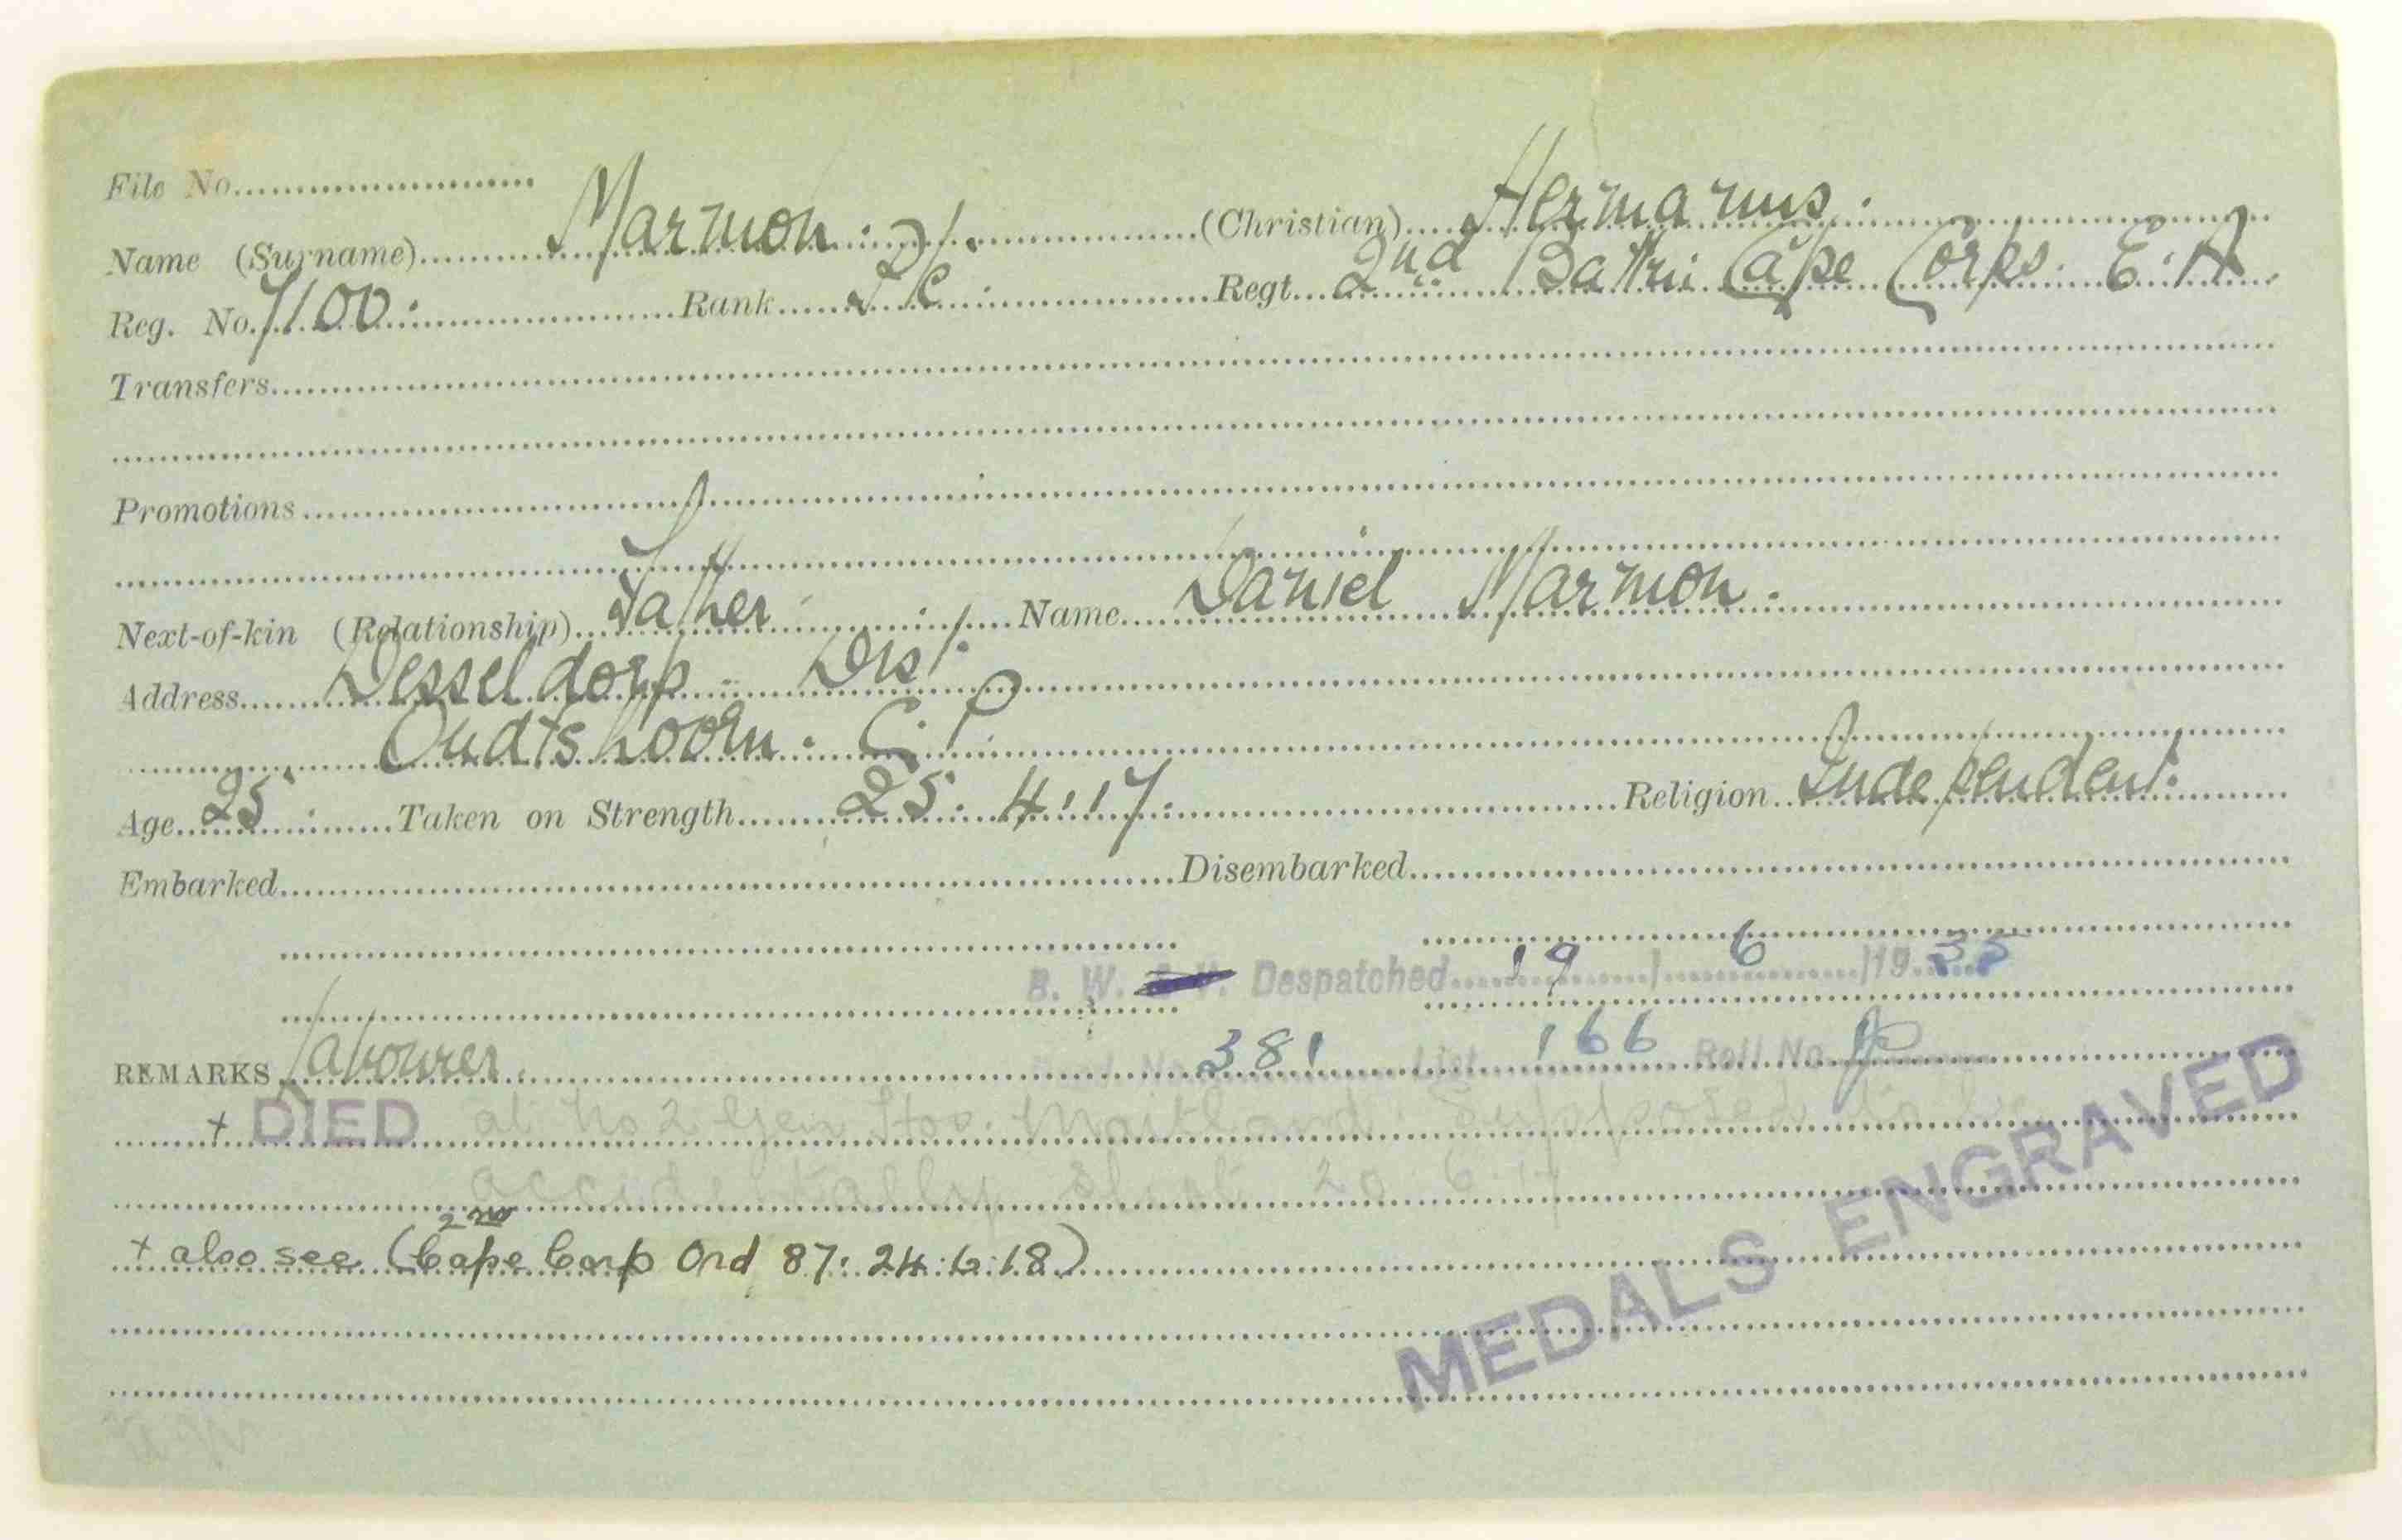 File No.
Name (Surname) Marmon. (Christian) Hermanus.
Reg. No. 7100. Rank Pte. Regt. 2nd Battn. Cape Corps. E.A.
Transfers
Promotions
Next-of-kin (Relationship) Father Name Daniel Marmon.
Address Desseldorp - Dist.
Oudtshoorn. C.P
Age 25 Taken on Strength 25.4.17. Religion Independent.
Embarked Disembarked
B. W. & V. Despatched 19 / 6 /19 35
No. 381 List 166 Roll No.
REMARKS Labourer.
+ DIED at No 2 Gen Hos. Maitland. Supposed to be
accidentally shot 20.6.17
+ also see (2nd Cape Corp Ord 87. 24.6.18)
MEDALS ENGRAVED